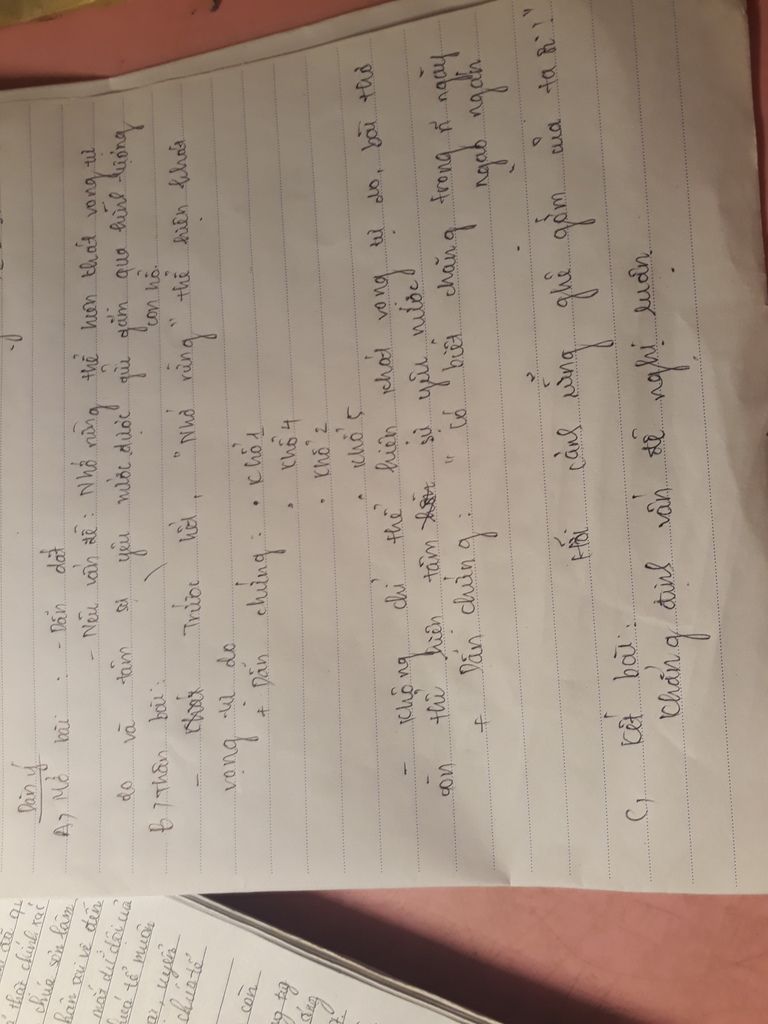 Dàn ý
A, Mở bài : - Dẫn dắt
- Nêu vấn đề : Nhớ rừng thể hiện khát vọng tự
do và tâm sự yêu nước được gửi gắm qua hình tượng
con hổ.
B, Thân bài :
- Trước hết, "Nhớ rừng" thể hiện khát
vọng tự do
+ Dẫn chứng : • Khổ 1
• Khổ 4
• Khổ 2
• Khổ 5
- Không chỉ thể hiện khát vọng tự do, bài thơ
còn thể hiện tâm sự yêu nước
+ Dẫn chứng : " Có biết chăng trong n~ ngày
ngao ngán
Hỡi cảnh rừng ghê gớm của ta ơi !"
C, Kết bài :
Khẳng định vấn đề nghị luận
chúa sơn lâm
còn